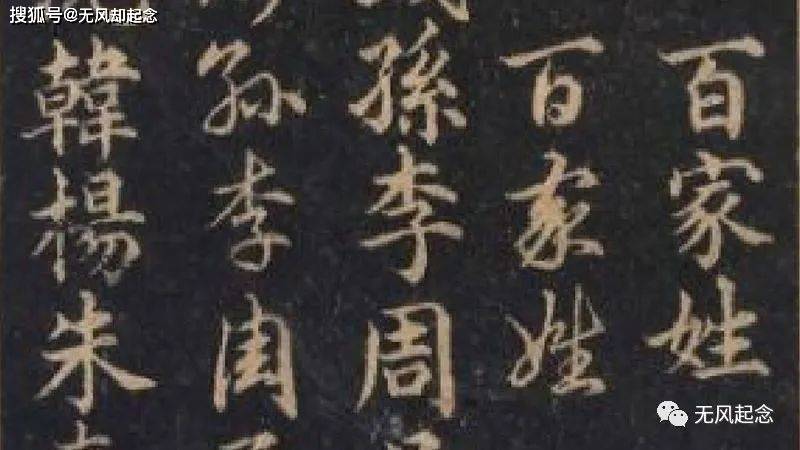 搜狐号@无风却起念
百家姓
百家姓
孫李周
孫李周
韓楊朱
无风起念